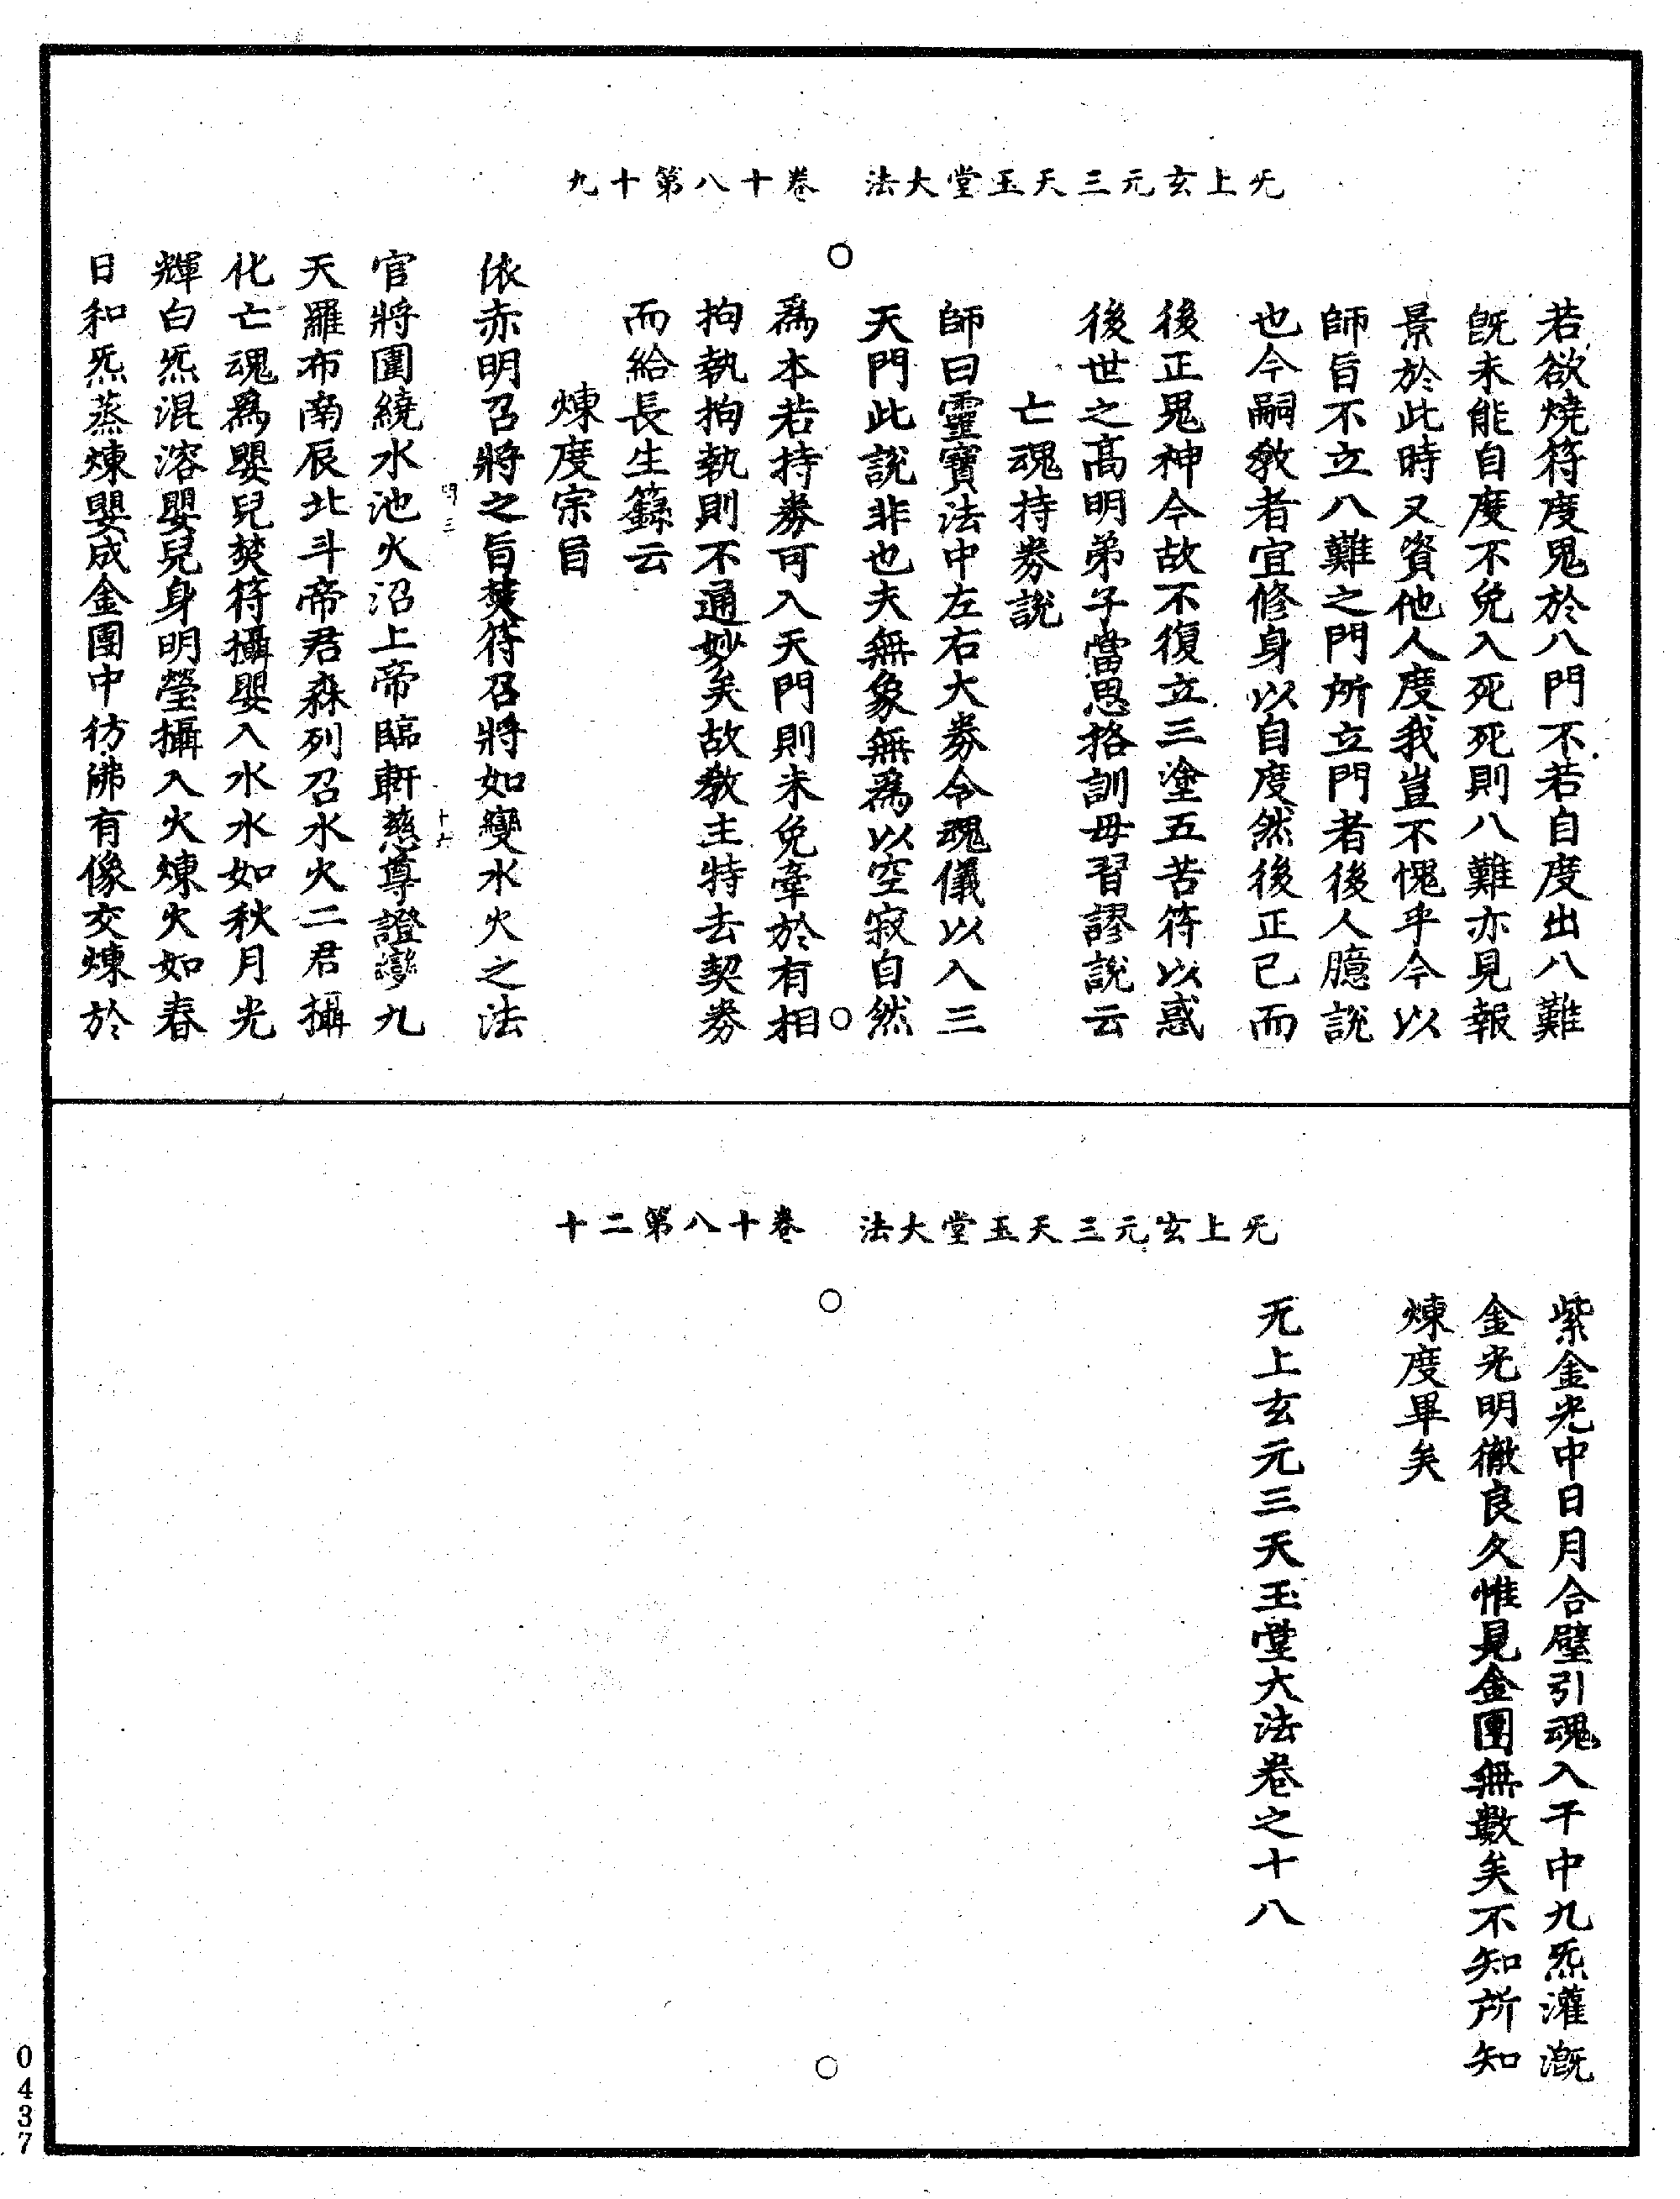 无上玄元三天玉堂大法　卷十八第十九
若欲燒符度鬼於八門不若自度出八難
旣未能自度不免入死死則八難亦見報
景於此時又資他人度我豈不愧乎今以
師旨不立八難之門所立門者後人臆說
也今嗣敎者宜修身以自度然後正己而
後正鬼神今故不復立三塗五苦符以惑
後世之高明弟子當思格訓毋習謬說云
亡魂持券說
師曰靈寶法中左右大券令魂儀以入三
天門此說非也夫無象無爲以空寂自然
爲本若持券可入天門則未免牽於有相
拘執拘執則不通妙矣故敎主特去契券
而給長生籙云
煉度宗旨
依赤明召將之旨焚符召將如變水火之法
官將圍繞水池火沼上帝臨軒慈尊證變九
天羅布南辰北斗帝君森列召水火二君攝
化亡魂爲嬰兒焚符攝嬰入水水如秋月光
輝白炁混溶嬰兒身明瑩攝入火煉火如春
日和炁蒸煉嬰成金團中彷彿有像交煉於
无上玄元三天玉堂大法　卷十八第二十
紫金光中日月合璧引魂入于中九炁灌溉
金光明徹良久惟見金團無數矣不知所知
煉度畢矣
无上玄元三天玉堂大法卷之十八
0437